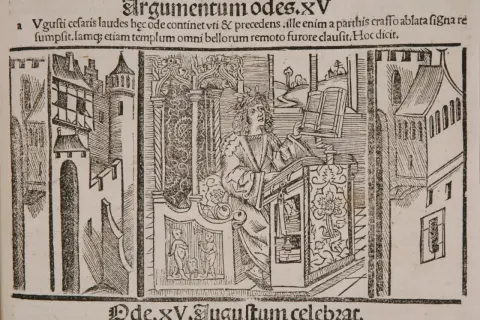 Argumentum odes.xV
a Vgusti cesaris laudes hęc ode continet vti & precedens. ille enim a parthis crasso ablata signa re
sumpsit. Iamq; etiam templum omni bellorum remoto furore clausit. Hoc dicit.
Ode. xV. Augustum celebrat.